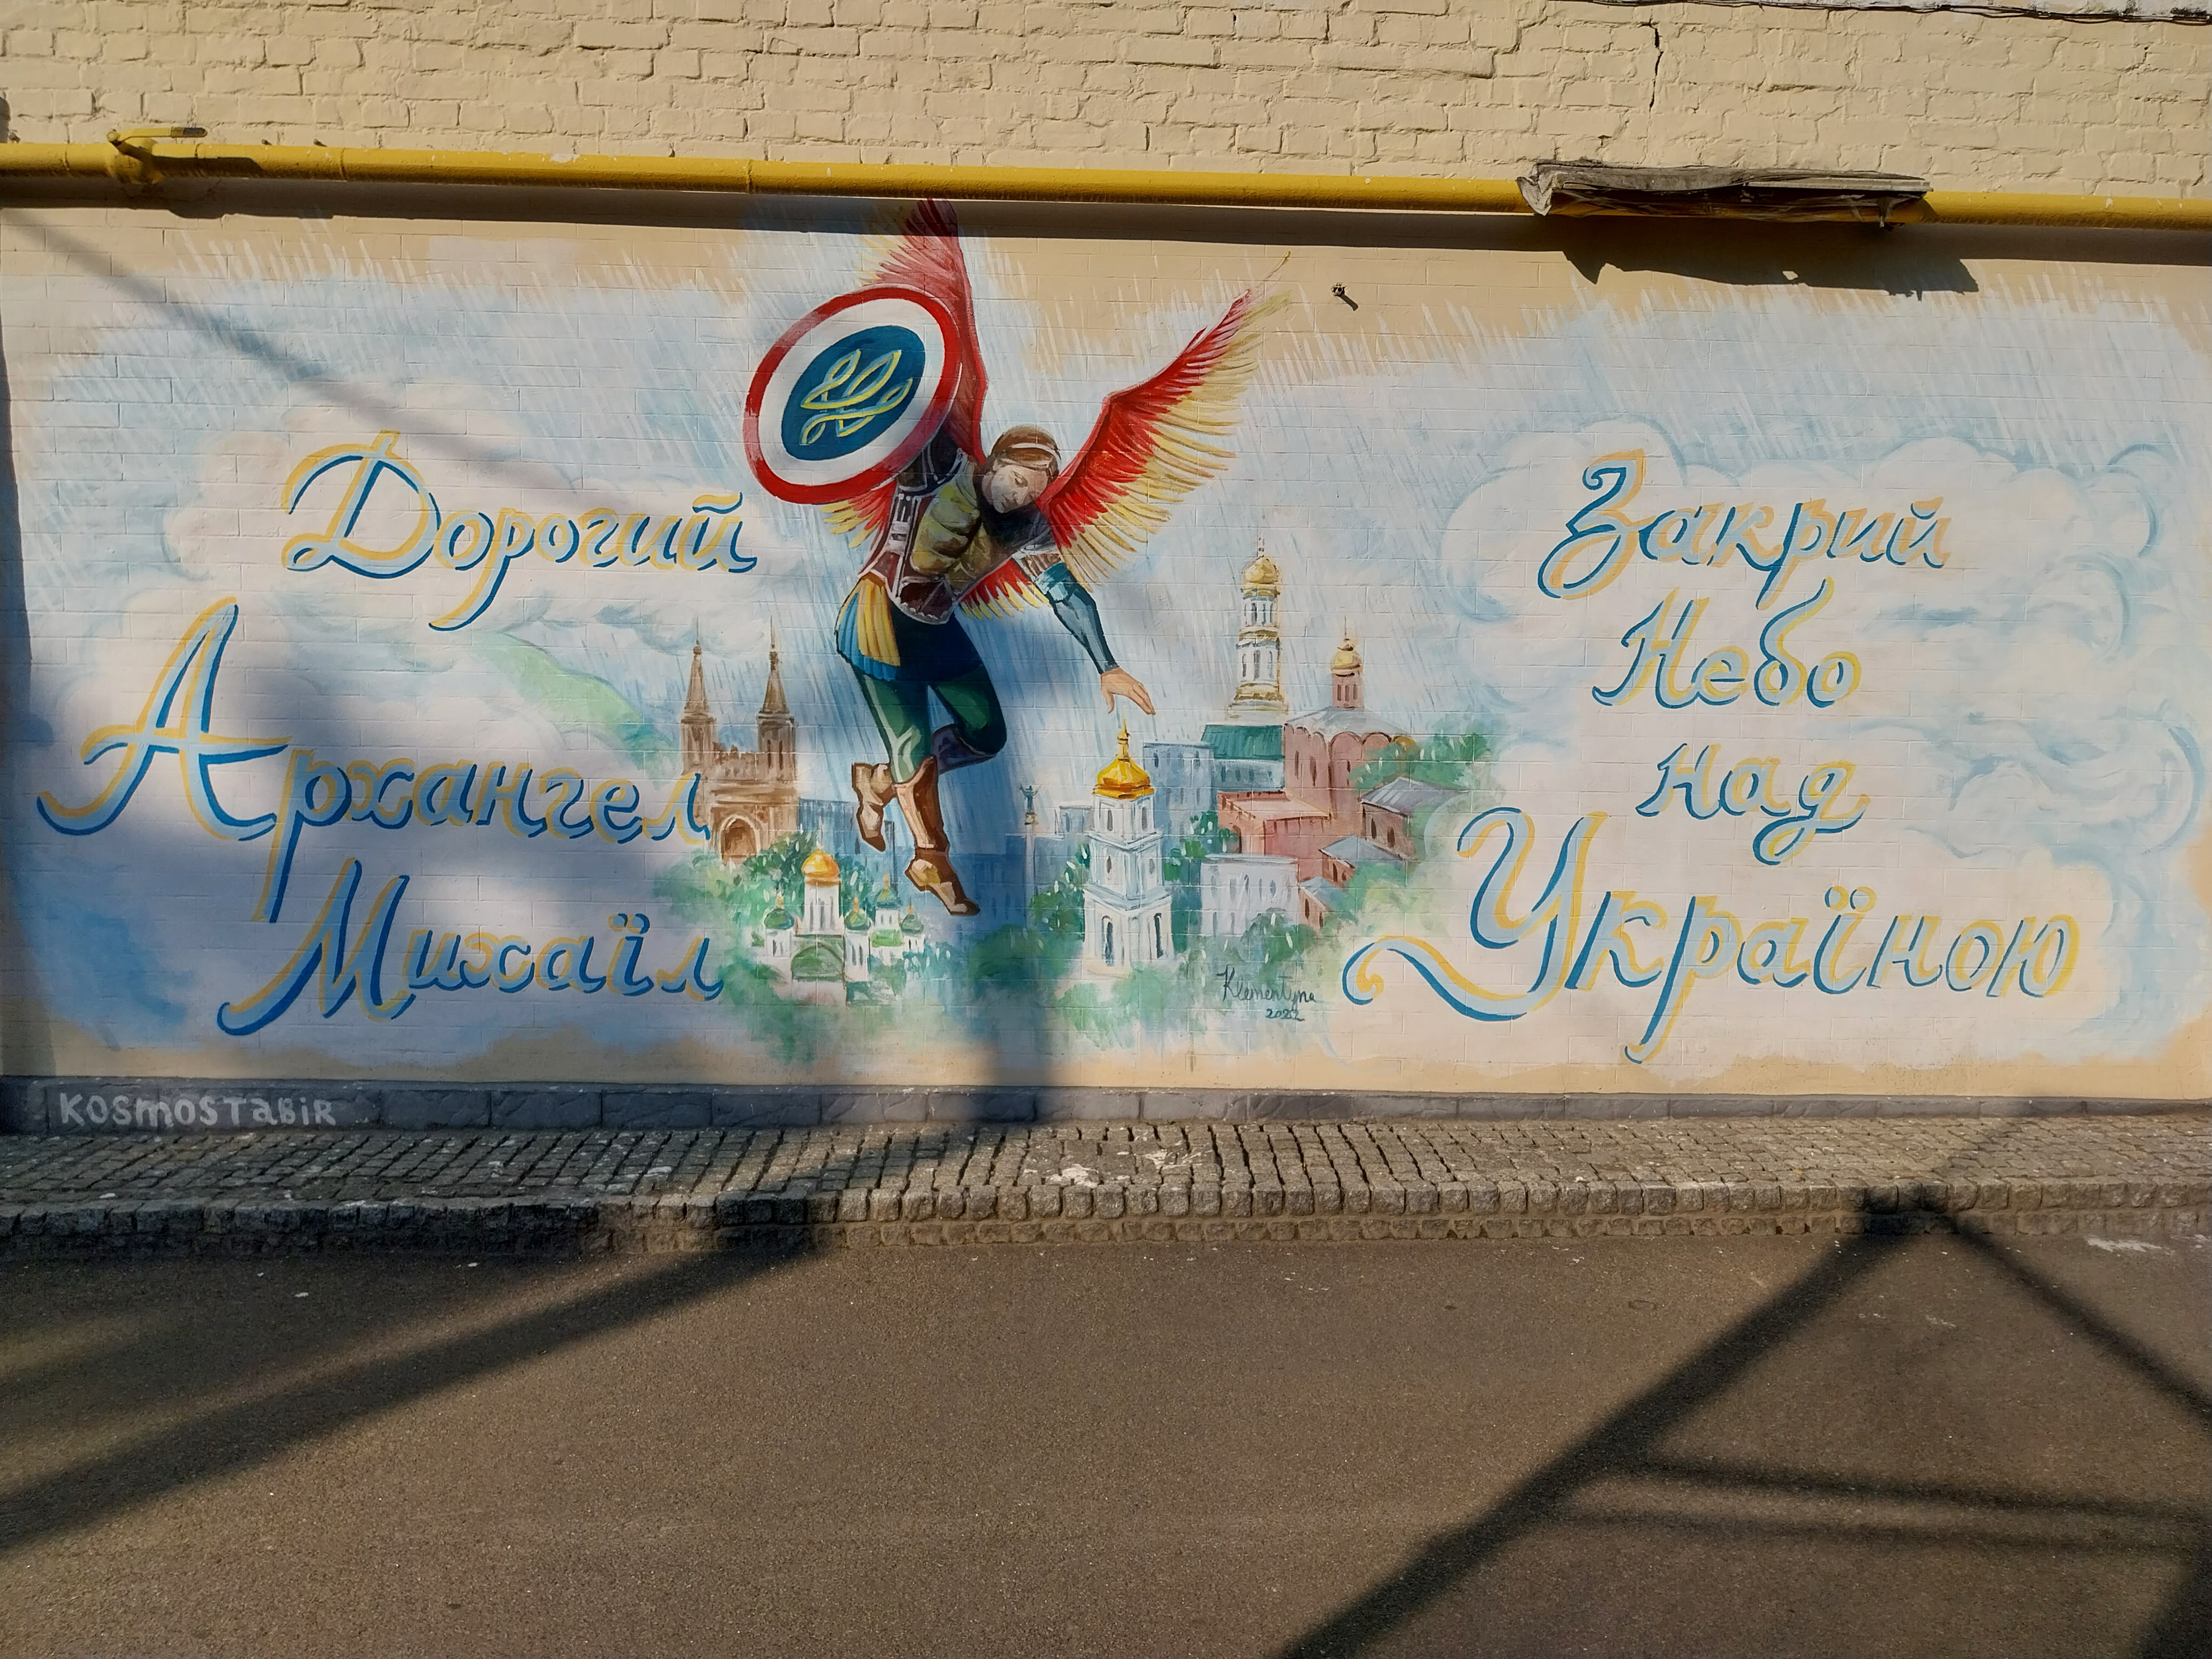 Дорогий
Архангел
Михаїл
Закрий
Небо
над
Україною
Klementyna
2022
KOSMOSTABIR